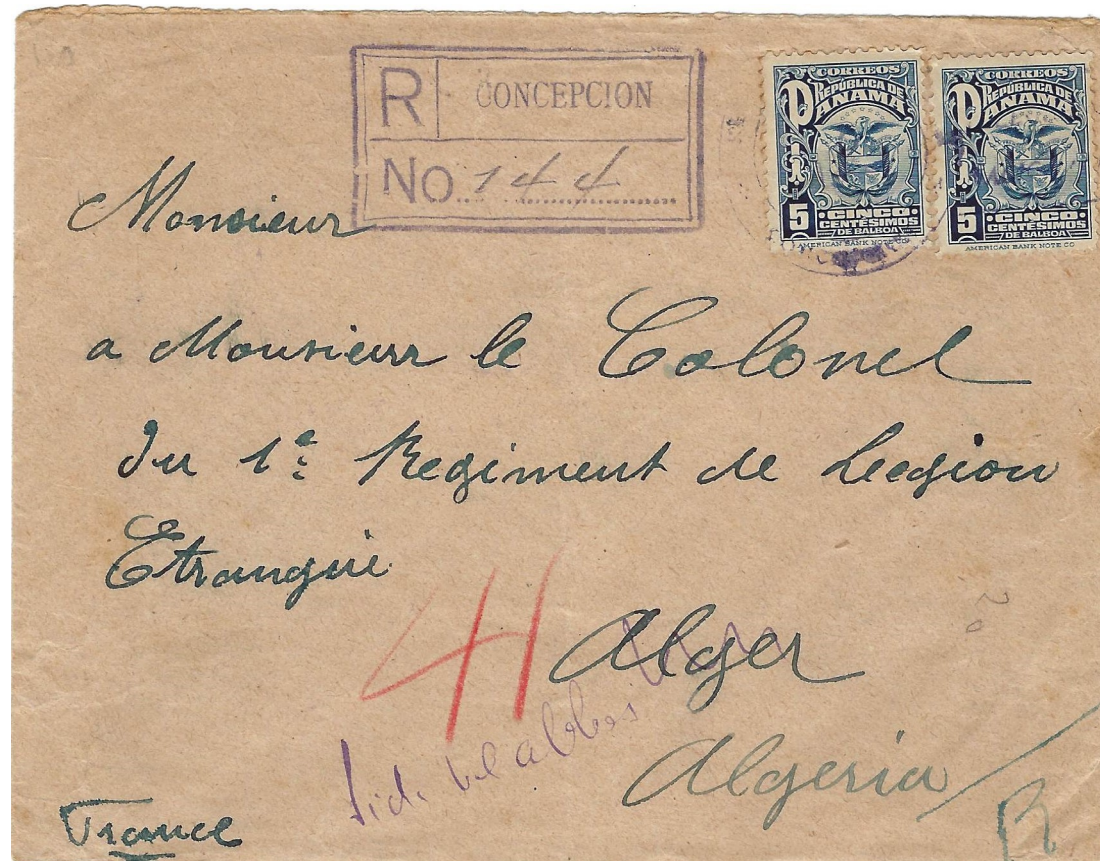 R CONCEPCION
No 144
CORREOS
REPÚBLICA DE
PANAMA
5 CINCO
CENTÉSIMOS
DE BALBOA
AMERICAN BANK NOTE CO.
CORREOS
REPÚBLICA DE
PANAMA
5 CINCO
CENTÉSIMOS
DE BALBOA
AMERICAN BANK NOTE CO.
Monsieur
a Monsieur le Colonel
du 1e Regiment de Legion
Etrangire
41
Alger
Sidi bel abbes
Algeria
France
R